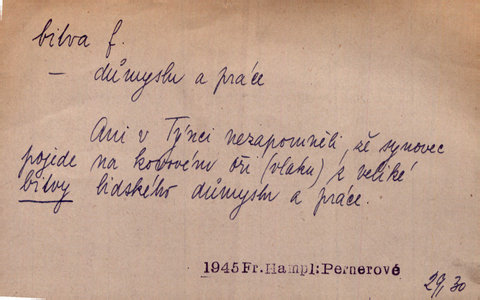 bitva f.
— důmyslu a práce
Ani v Týnci nezapomněli, že synovec
pojede na kovovém oři (vlaku) z veliké
bitvy lidského důmyslu a práce.
1945 Fr. Hampl: Pernerové
29, 30